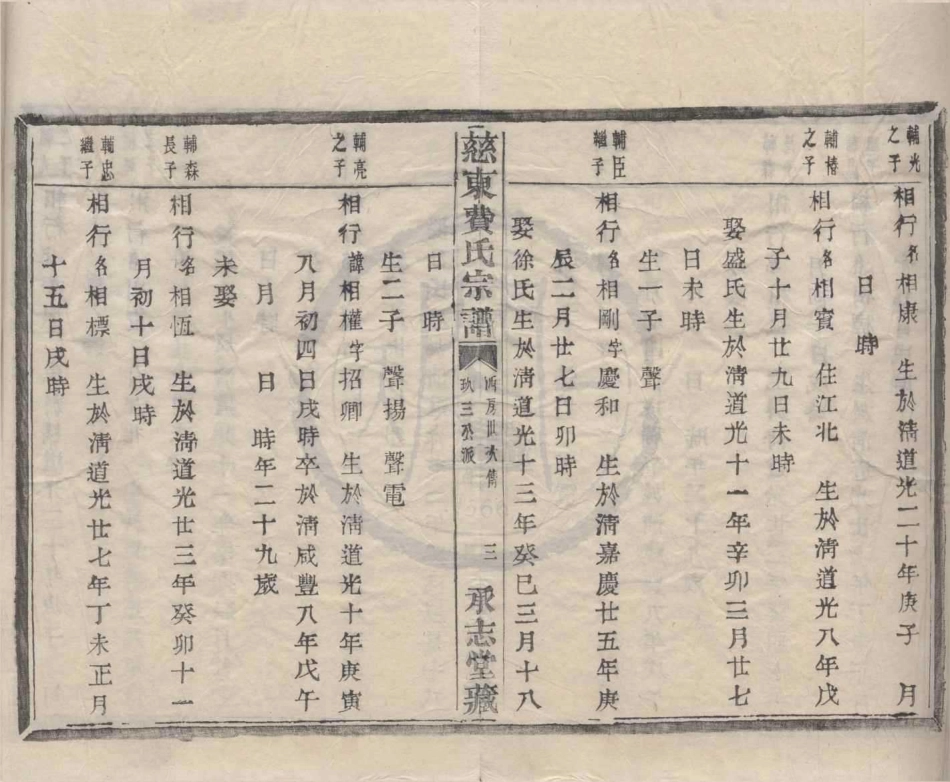 輔光
之子
相行名相康 生於清道光二十年庚子 月
日 時
輔椿
之子
相行名相寳 住江北 生於清道光八年戊
子十月廿九日未時
娶盛氏生於清道光十一年辛卯三月廿七
日未時
生一子 聲
輔臣
繼子
相行名相剛字慶和 生於清嘉慶廿五年庚
辰二月廿七日卯時
娶徐氏生於清道光十三年癸巳三月十八
慈東費氏宗譜
西房世次傳
玖三公派
三
承志堂藏
日 時
生二子 聲揚 聲電
輔亮
之子
相行諱相權字招卿 生於清道光十年庚寅
八月初四日戌時卒於清咸豐八年戊午
月 日 時年二十九歲
未娶
輔森
長子
相行名相恆 生於清道光廿三年癸卯十一
月初十日戌時
輔忠
繼子
相行名相標 生於清道光廿七年丁未正月
十五日戌時